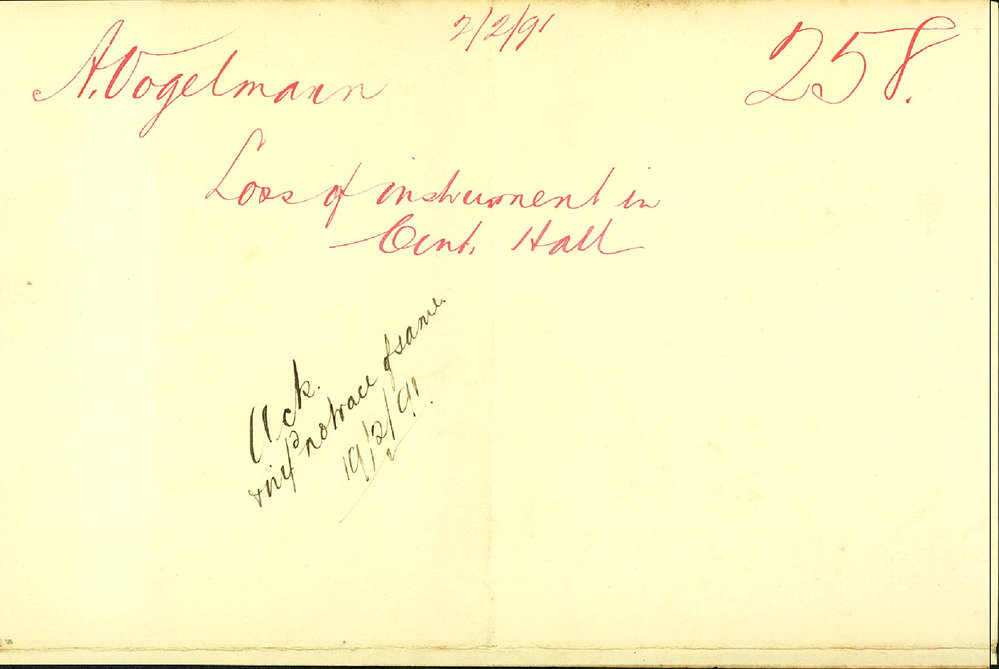 2/2/91
A. Vogelmann
258.
Loss of instrument in
Cent. Hall
Ack.
& inf no trace of same.
19/2/91.